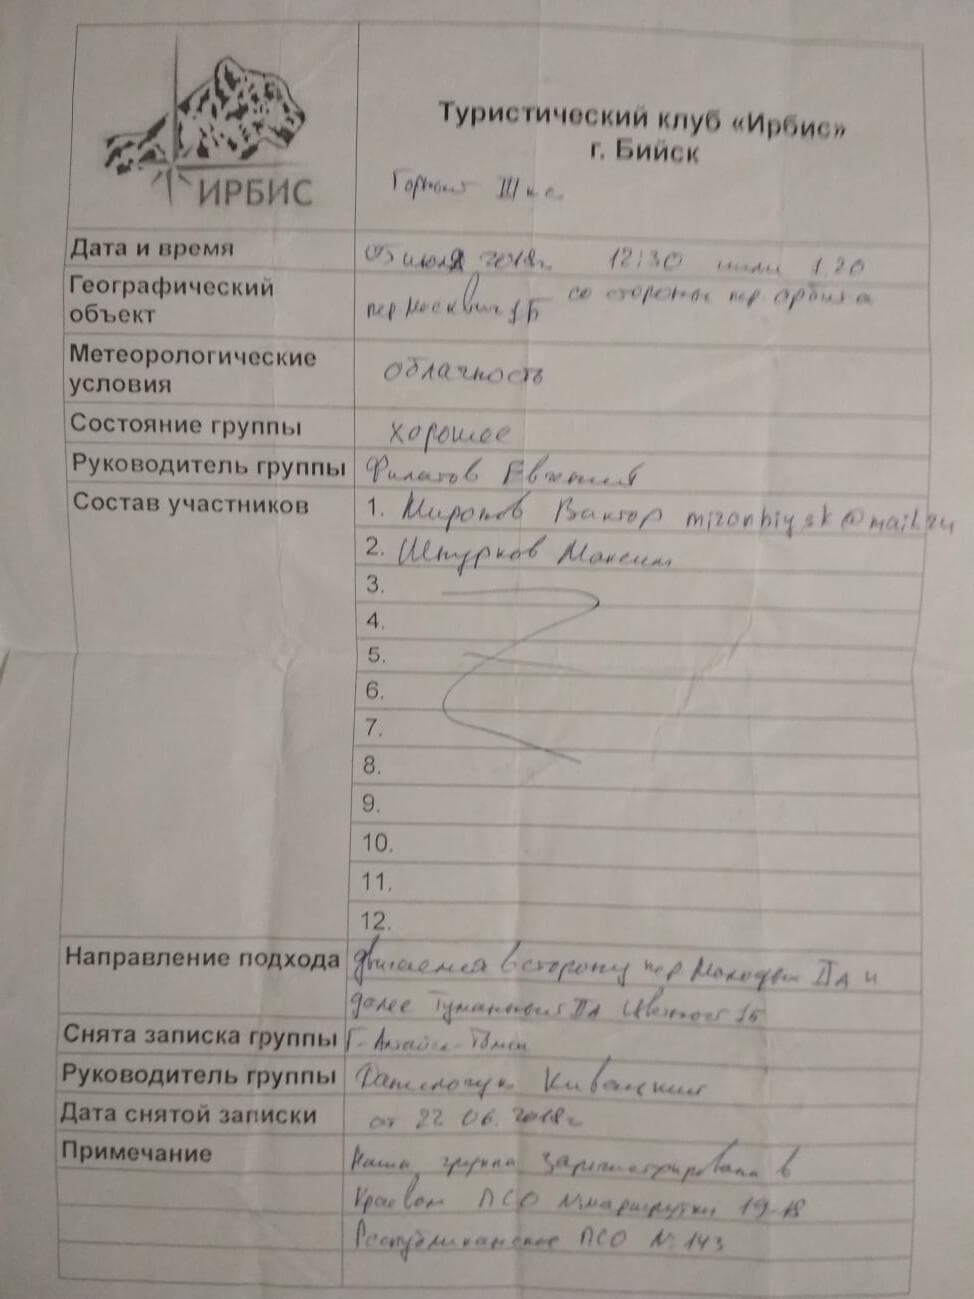 ИРБИС
Туристический клуб «Ирбис»
г. Бийск
Горный III к.с.
Дата и время
05 июля 2018г. 12:30 шли 1.20
Географический
объект
со стороны пер. Орбита
пер Москвич 1Б
Метеорологические
условия
облачность
Состояние группы
хорошее
Руководитель группы
Филатов Евгений
Состав участников
1. Миронов Виктор mironbiysk@mail.ru
2. Штурков Максим
3.
4.
5.
6.
7.
8.
9.
10.
11.
12.
Направление подхода
двигаемся в сторону пер
IIА и
далее Туманный IIА 1Б
Снята записка группы
Г-Алтайск-Томск
Руководитель группы
Дата снятой записки
от 22 06. 2018г
Примечание
Наша группа зарегистрирована в
Краевом ПСО №маршрутки 19-18
Республиканское ПСО № 143